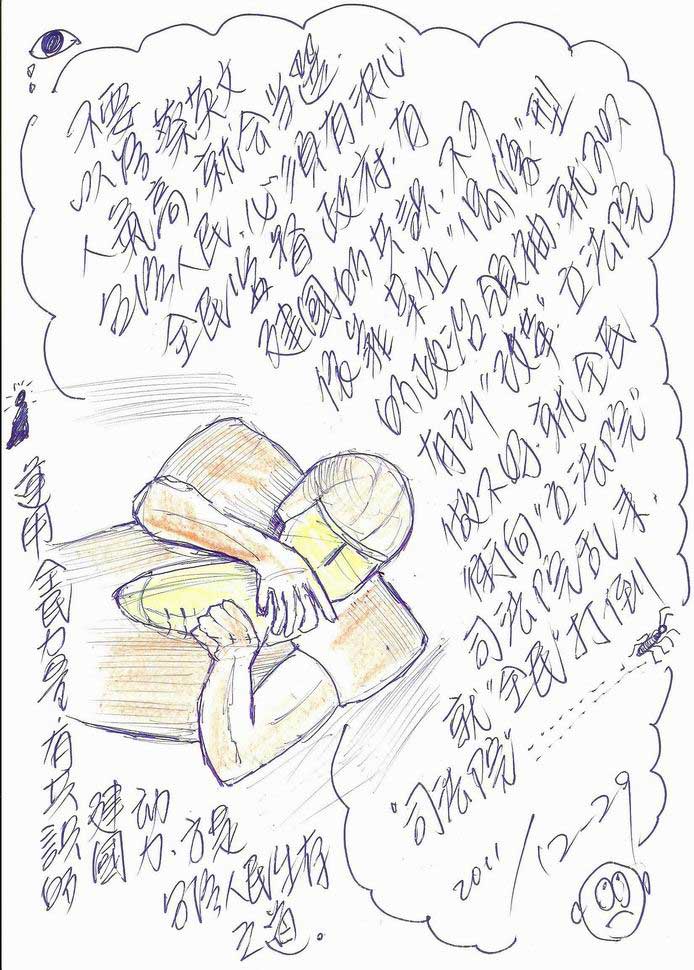 不要
以為蔡英文
人氣高就會當選.
台灣人民.必須有決心
全民監督政府.有
建國的共識.不可
"偶像"型
的政治領袖就可以
有到"改革".立法院
做不好.就全民
衝向"立法院"
司法院亂來.
就"全民"打倒
"司法院"
2011/12-29
運用全民力量.有共識的
建國
動力.方是
台灣人民生存
之道。